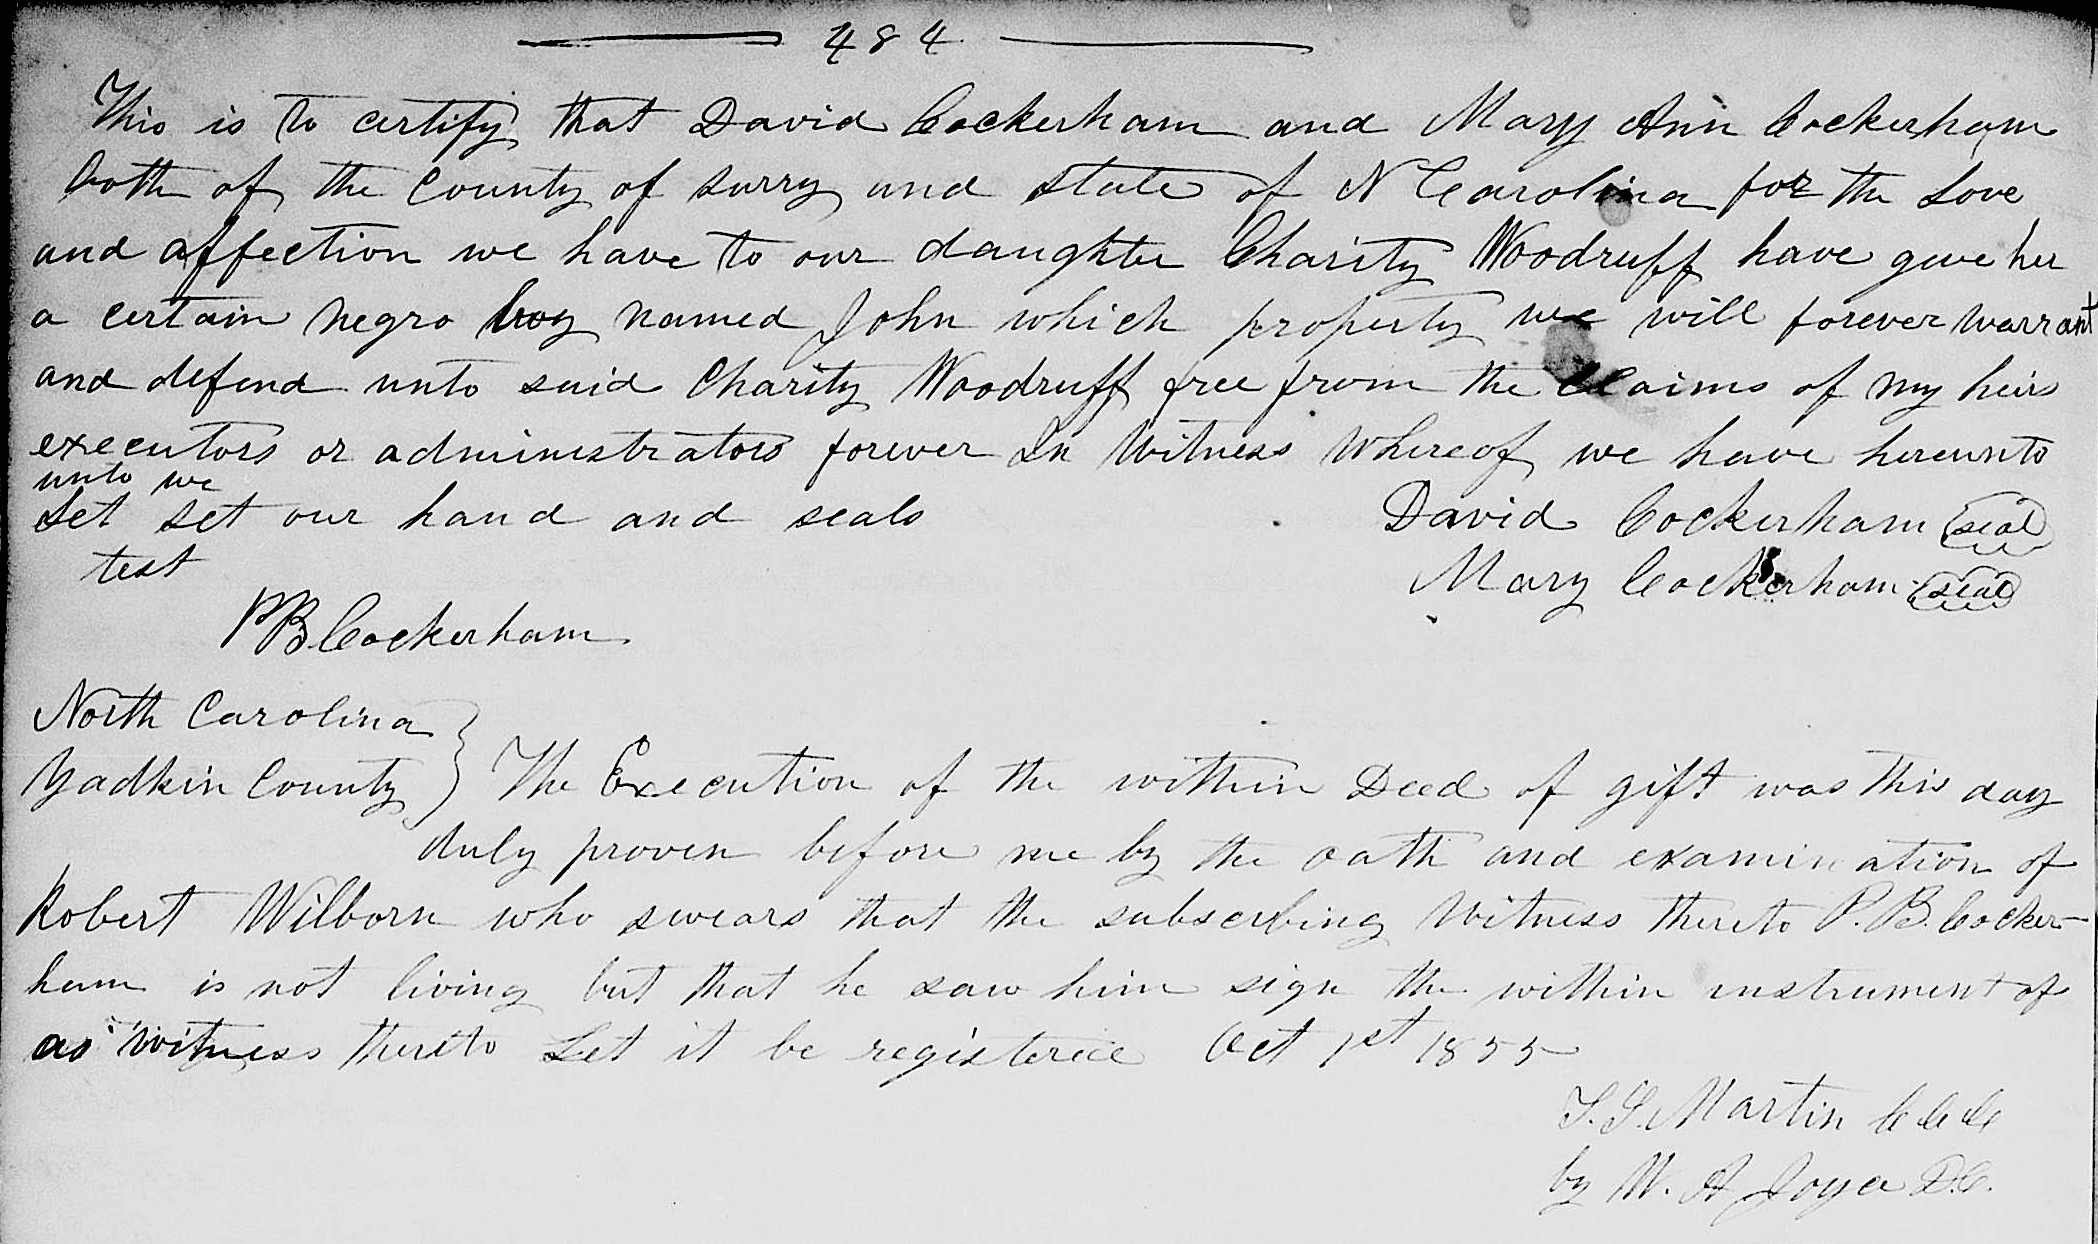 484
This is to certify that David Cockerham and Mary Ann Cockerham
both of the County of Surry and State of N Carolina for the Love
and affection we have to our daughter Charity Woodruff have gave her
a certain negro boy named John which property we will forever warrant
and defend unto said Charity Woodruff free from the Claims of my heirs
executors or administrators forever In Witness Whereof we have hereunto
unto we
Set set our hand and seals
David Cockerham seal
test
Mary Cockerham seal
P B Cockerham
North Carolina
Yadkin County } The Execution of the within Deed of gift was this day
duly proven before me by the oath and examination of
Robert Wilborn who swears that the subscrbing Witness thereto P. B. Cocker-
ham is not living but that he saw him sign the within instrument of
as Witness thereto Let it be registered Oct 1st 1855
Martin C C C
by W. A Joyce D.C.